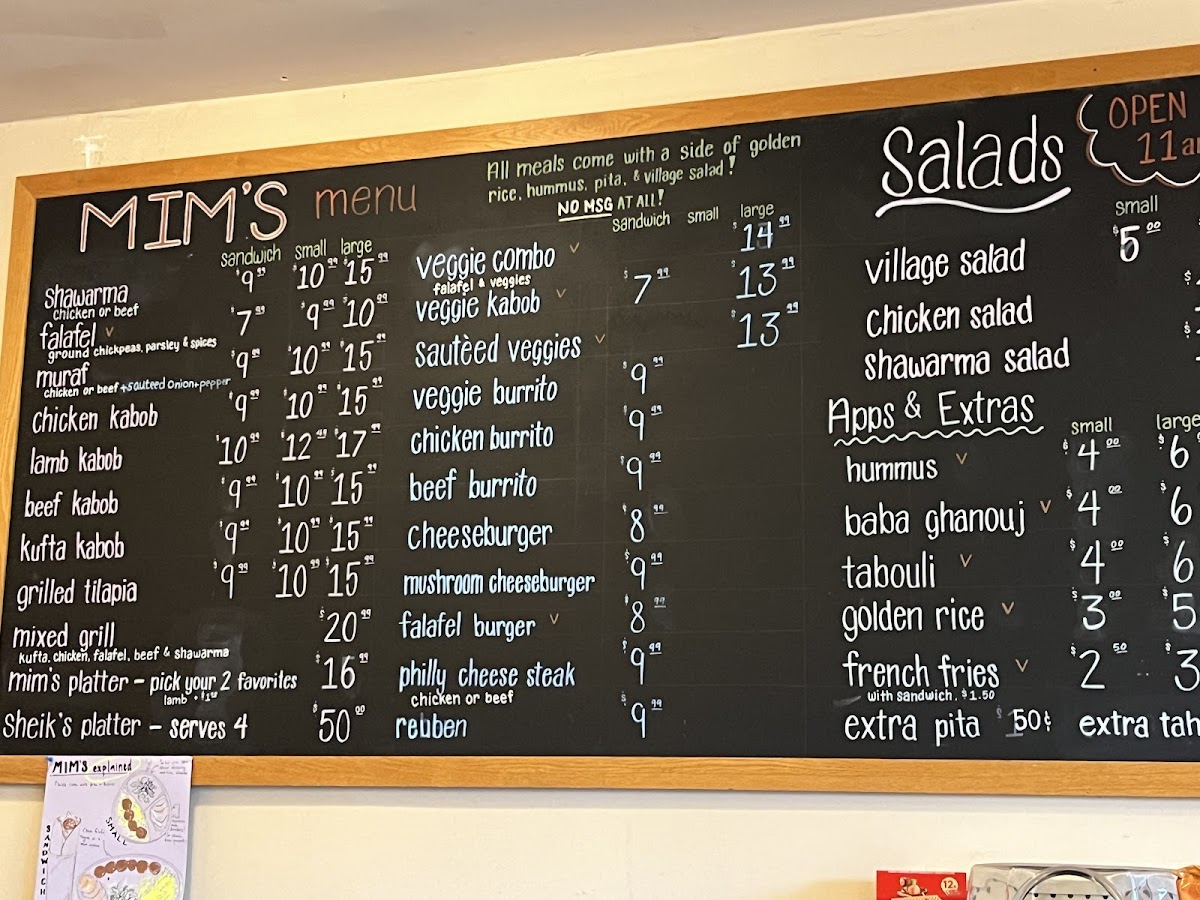 MIM'S menu
All meals come with a side of golden
rice, hummus, pita, & village salad!
NO MSG AT ALL!
sandwich small large
shawarma $9.99 $10.99 $15.99
chicken or beef
falafel v $7.99 $9.99 $10.99
ground chickpeas, parsley & spices
muraf $9.99 $10.99 $15.99
chicken or beef + sauteed onion + pepper
chicken kabob $9.99 $10.99 $15.99
lamb kabob $10.99 $12.99 $17.99
beef kabob $9.99 $10.99 $15.99
kufta kabob $9.99 $10.99 $15.99
grilled tilapia $9.99 $10.99 $15.99
mixed grill $20.99
kufta, chicken, falafel, beef & shawarma
mim's platter - pick your 2 favorites $16.99
lamb + $1.00
Sheik's platter - serves 4 $50.00
sandwich small large
veggie combo v $14.99
falafel & veggies
veggie kabob v $7.99 $13.99
sautèed veggies v $13.99
veggie burrito $9.99
chicken burrito $9.99
beef burrito $9.99
cheeseburger $8.99
mushroom cheeseburger $9.99
falafel burger v $8.99
philly cheese steak $9.99
chicken or beef
reuben $9.99
Salads
OPEN
11a
small
village salad $5.00
chicken salad $
shawarma salad $
Apps & Extras
small large
hummus v $4.00 $6
baba ghanouj v $4.00 $6
tabouli v $4.00 $6
golden rice v $3.00 $5
french fries v $2.50 $3
with sandwich, $1.50
extra pita 50¢ extra tah
MIM'S explained
SMALL
SANDWICH
12